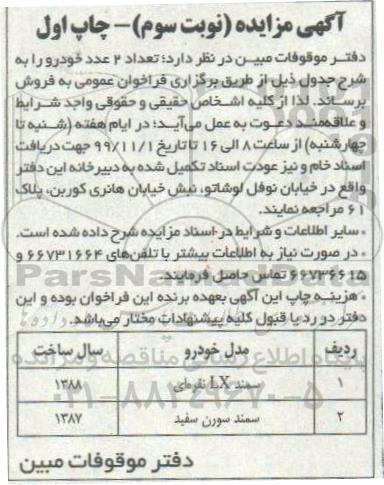 آگهی مزایده (نوبت سوم) – چاپ اول
دفتر موقوفات مبین در نظر دارد؛ تعداد ۲ عدد خودرو را به
شرح جدول ذیل از طریق برگزاری فراخوان عمومی به فروش
برساند. لذا از کلیه اشخاص حقیقی و حقوقی واجد شرایط
و علاقه‌مند دعوت به عمل می‌آید؛ در ایام هفته (شنبه تا
چهارشنبه) از ساعت ۸ الی ۱۶ تا تاریخ ۹۹/۱۱/۱ جهت دریافت
اسناد خام و نیز عودت اسناد تکمیل شده به دبیرخانه این دفتر
واقع در خیابان نوفل لوشاتو، نبش خیابان هانری کوربن، پلاک
۶۱ مراجعه نمایند.
• سایر اطلاعات و شرایط در اسناد مزایده شرح داده شده است.
• در صورت نیاز به اطلاعات بیشتر با تلفن‌های ۶۶۷۳۱۶۶۴ و
۶۶۷۳۶۶۱۵ تماس حاصل فرمایند.
• هزینه چاپ این آگهی بعهده برنده این فراخوان بوده و این
دفتر در رد یا قبول کلیه پیشنهادات مختار می‌باشد.
ردیف مدل خودرو سال ساخت
۱ سمند LX نقره‌ای ۱۳۸۸
۲ سمند سورن سفید ۱۳۸۷
دفتر موقوفات مبین
ParsNamadData
پایگاه اطلاع رسانی مناقصه و مزایده
۰۲۱-۸۸۳۴۹۶۷۰-۵